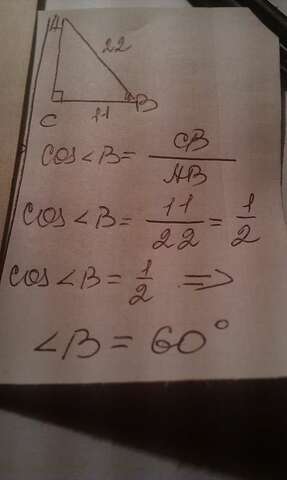 A
22
C
B
11
cos∠B = CB/AB
cos∠B = 11/22 = 1/2
cos∠B = 1/2 =>
∠B = 60°